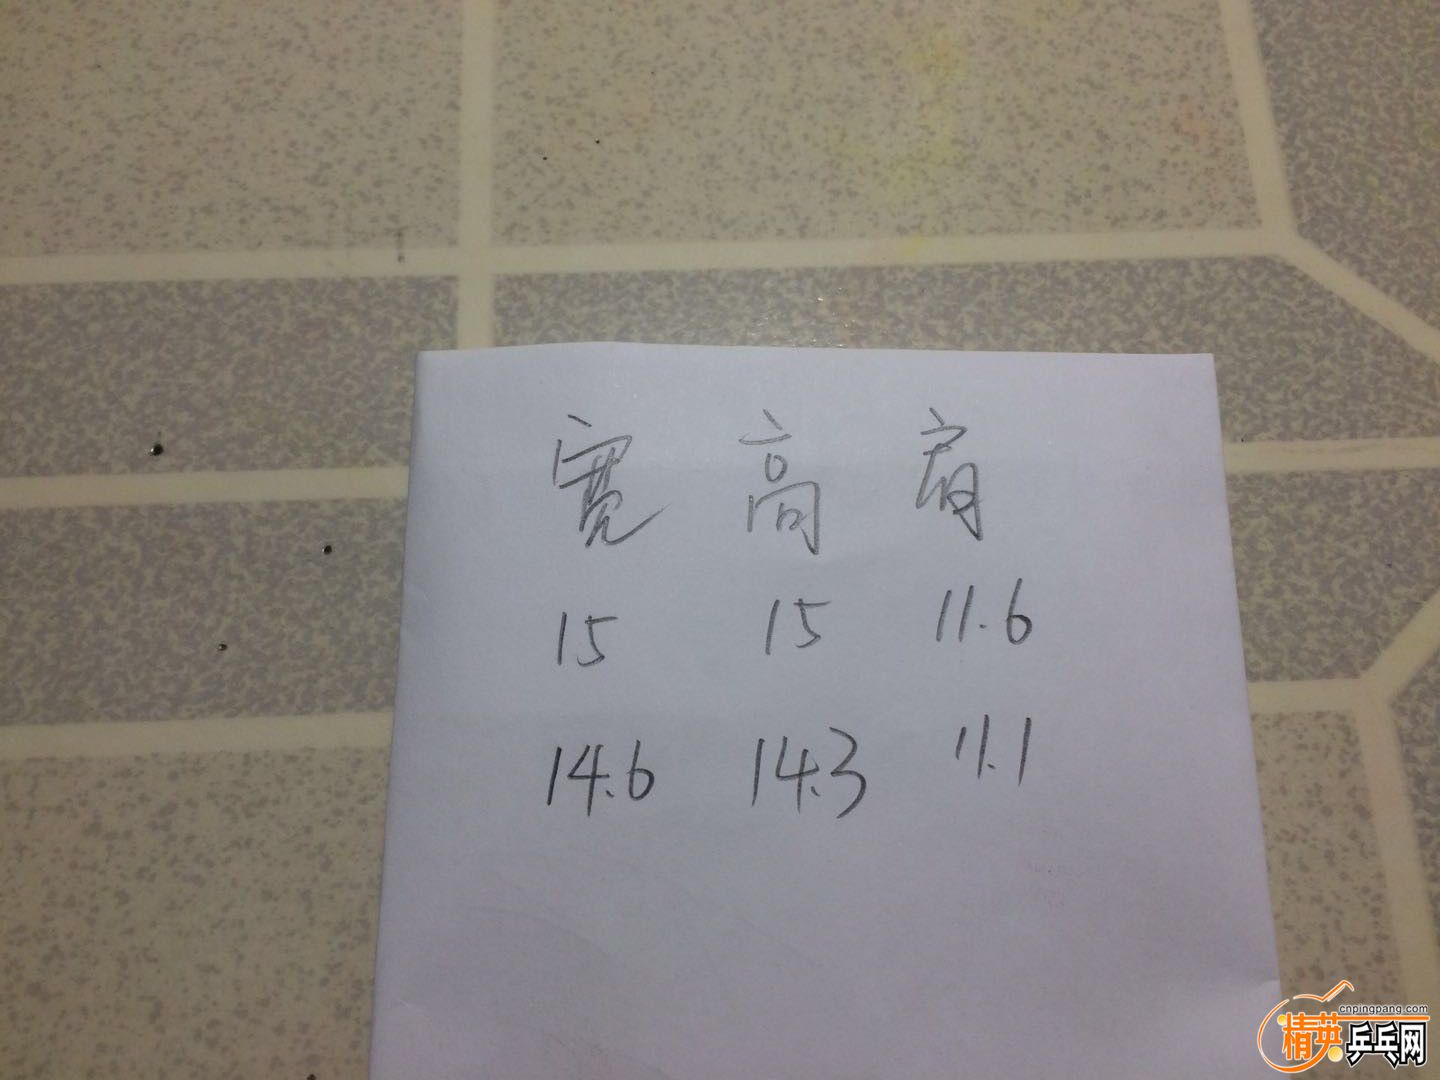 宽 高 肩
15 15 11.6
14.6 14.3 11.1
cnpingpang.com
精英乒乓网